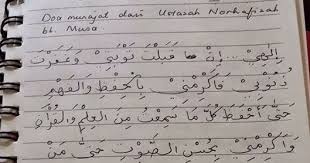 Doa munajat dari Ustazah Norhafizah
bt. Musa
إِلٰهِيْ... إِنْ قَبِلْتَ تَوْبَتِيْ وَغَفَرْتَ
ذُنُوْبِيْ فَاكْرِمْنِيْ بِالْحِفْظِ وَالْفَهْمِ
حَتَّى أَحْفَظَ كُلَّ مَا سَمِعْتُ مِنَ الْعِلْمِ وَالْقُرْآنِ
وَاكْرِمْنِيْ بِحُسْنِ الصَّوْتِ حَتَّى مَنْ